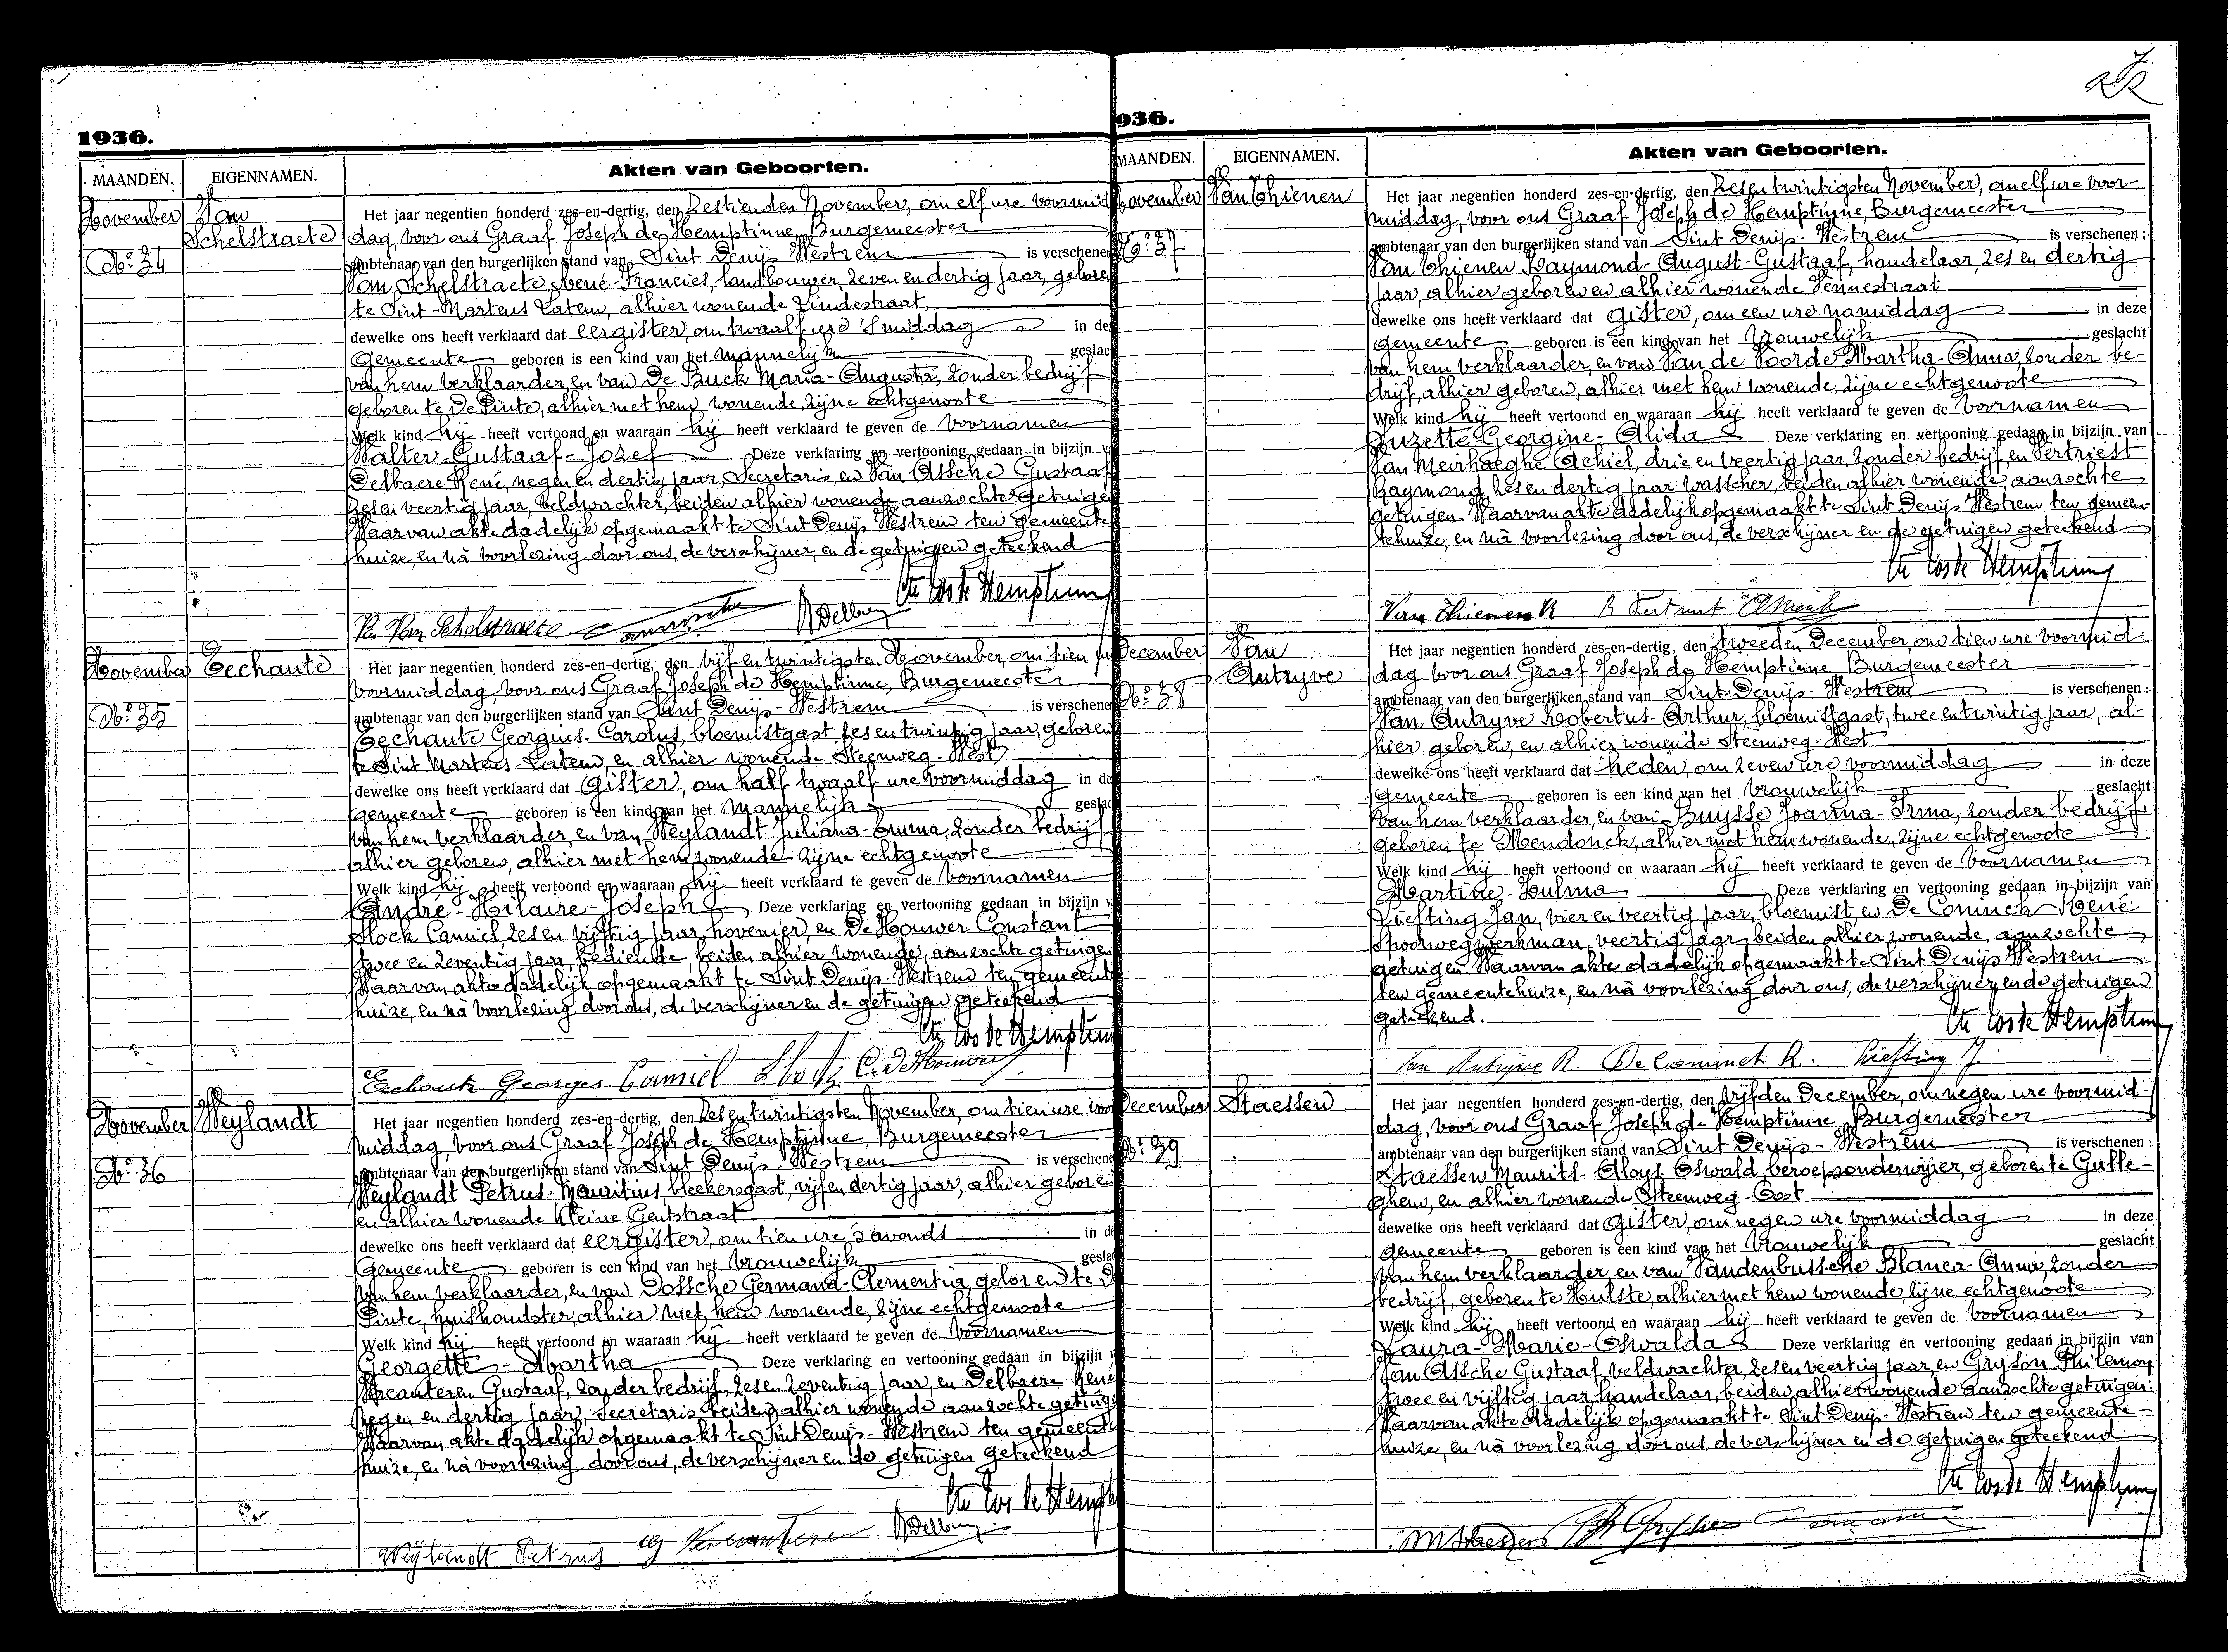 1936.
MAANDEN.
EIGENNAMEN.
Akten van Geboorten.
November
Van
Schelstraete
No: 34
Het jaar negentien honderd zes-en-dertig, den Zestienden November, om elf ure voormid
dag, voor ons Graaf Joseph de Hemptinne, Burgemeester
ambtenaar van den burgerlijken stand van Sint Denijs Westrem is verschenen
Van Schelstraete René-Francies, landbouwer, zeven en dertig jaar, geboren
te Sint-Martens Latem, alhier wonende Lindestraat,
dewelke ons heeft verklaard dat eergister, om twaalf ure 's middag in de
gemeente geboren is een kind van het mannelijk geslac
van hem verklaarder, en van De Buck Maria-Augusta, zonder bedrijf
geboren te De Pinte, alhier met hem wonende, zijne echtgenoote
Welk kind hij heeft vertoond en waaraan hij heeft verklaard te geven de voornamen
Walter-Gustaaf-Jozef Deze verklaring en vertooning gedaan in bijzijn v
Delbaere René, negen en dertig jaar, Secretaris, en Van Assche Gustaaf
zes en veertig jaar, veldwachter, beiden alhier wonende aanzochte getuigen
Waarvan akte dadelijk opgemaakt te Sint Denijs Westrem ten gemeente
huize, en nà voorlezing door ons, de verschijner, en de getuigen geteekend
Cte Jos de Hemptinne
R. Van Schelstraete R Delbaere
November
Eechaute
No: 35
Het jaar negentien honderd zes-en-dertig, den vijf en twintigsten November, om tien ure
voormiddag, voor ons Graaf Joseph de Hemptinne, Burgemeester
ambtenaar van den burgerlijken stand van Sint Denijs-Westrem is verschenen
Eechaute Georgius-Carolus, bloemistgast, zes en twintig jaar, geboren
te Sint Martens-Latem, en alhier wonende Steenweg-West
dewelke ons heeft verklaard dat gister, om half twaalf ure voormiddag in de
gemeente geboren is een kind van het mannelijk geslac
van hem verklaarder, en van Weylandt Juliana-Emma, zonder bedrijf
alhier geboren, alhier met hem wonende zijne echtgenoote
Welk kind hij heeft vertoond en waaraan hij heeft verklaard te geven de voornamen
André-Hilaire-Joseph Deze verklaring en vertooning gedaan in bijzijn v
Slock Camiel, zes en vijftig jaar, hovenier, en De Houwer Constant
twee en zeventig jaar bediende, beiden alhier wonende, aanzochte getuigen
Waarvan akte dadelijk opgemaakt te Sint Denijs-Westrem ten gemeente
huize, en nà voorlezing door ons, de verschijner en de getuigen geteekend
Cte Jos de Hemptinne
Eechaute Georges Camiel Slock C. De Houwer
November
Weylandt
No: 36
Het jaar negentien honderd zes-en-dertig, den Zes en twintigsten November, om tien ure voor
middag, voor ons Graaf Joseph de Hemptinne, Burgemeester
ambtenaar van den burgerlijken stand van Sint Denijs-Westrem is verschene
Weylandt Petrus-Mauritius, bleekersgast, vijf en dertig jaar, alhier geboren
en alhier wonende Kleine Gentstraat
dewelke ons heeft verklaard dat eergister, om tien ure 's avonds in de
gemeente geboren is een kind van het vrouwelijk gesla
van hem verklaarder, en van Dossche Germana-Clementia, geboren te De
Pinte, huishoudster, alhier met hem wonende, zijne echtgenoote
Welk kind hij heeft vertoond en waaraan hij heeft verklaard te geven de voornamen
Georgette-Martha Deze verklaring en vertooning gedaan in bijzijn v
Vercauteren Gustaaf, zonder bedrijf, zes en zeventig jaar, en Delbaere René
negen en dertig jaar, Secretaris beiden alhier wonende aanzochte getuige
Waarvan akte dadelijk opgemaakt te Sint Denijs-Westrem ten gemeente
huize, en nà voorlezing door ons, de verschijner en de getuigen geteekend
Cte Jos de Hempt
Weylandt Petrus G Vercauteren R Delbaere
936.
MAANDEN.
EIGENNAMEN.
Akten van Geboorten.
November
Van Thienen
No: 37
Het jaar negentien honderd zes-en-dertig, den Zes en twintigsten November, om elf ure voor-
middag, voor ons Graaf Joseph de Hemptinne, Burgemeester
ambtenaar van den burgerlijken stand van Sint Denijs-Westrem is verschenen:
Van Thienen Raymond-August-Gustaaf, handelaar, zes en dertig
jaar, alhier geboren en alhier wonende Pennestraat
dewelke ons heeft verklaard dat gister, om een ure namiddag in deze
gemeente geboren is een kind van het vrouwelijk geslacht
van hem verklaarder, en van Van de Voorde Martha-Anna, zonder be-
drijf, alhier geboren, alhier met hem wonende, zijne echtgenoote
Welk kind hij heeft vertoond en waaraan hij heeft verklaard te geven de voornamen
Suzette-Georgine-Alida Deze verklaring en vertooning gedaan in bijzijn van
Van Meirhaeghe Achiel, drie en veertig jaar, zonder bedrijf, en Vertriest
Raymond, zes en dertig jaar wasscher, beiden alhier wonende, aanzochte
getuigen. Waarvan akte dadelijk opgemaakt te Sint Denijs-Westrem ten gemeen-
tehuize, en nà voorlezing door ons, de verschijner en de getuigen geteekend
Cte Jos de Hemptinne
Van Thienen R R Vertriest
December
Van
Autryve
No: 38
Het jaar negentien honderd zes-en-dertig, den tweeden December, om tien ure voormid-
dag voor ons Graaf Joseph de Hemptinne, Burgemeester
ambtenaar van den burgerlijken stand van Sint Denijs-Westrem is verschenen:
Van Autryve Robertus-Arthur, bloemistgast, twee en twintig jaar, al-
hier geboren, en alhier wonende Steenweg-West
dewelke ons heeft verklaard dat heden, om zeven ure voormiddag in deze
gemeente geboren is een kind van het vrouwelijk geslacht
van hem verklaarder, en van Buysse Joanna-Irma, zonder bedrijf
geboren te Mendonck, alhier met hem wonende, zijne echtgenoote
Welk kind hij heeft vertoond en waaraan hij heeft verklaard te geven de voornamen
Martine-Zulma Deze verklaring en vertooning gedaan in bijzijn van
Liefting Jan, vier en veertig jaar, bloemist, en De Coninck René
Spoorwegwerkman, veertig jaar, beiden alhier wonende, aanzochte
getuigen. Waarvan akte dadelijk opgemaakt te Sint Denijs Westrem
ten gemeentehuize, en nà voorlezing door ons, de verschijner, en de getuigen
geteekend.
Cte Jos de Hemptinne
Van Autryve R. De Coninck R. Liefting J.
December
Staessen
No: 39
Het jaar negentien honderd zes-en-dertig, den vijfden December, om negen ure voormid-
dag, voor ons Graaf Joseph de Hemptinne, Burgemeester
ambtenaar van den burgerlijken stand van Sint Denijs-Westrem is verschenen:
Staessen Maurits-Aloys Oswald, beroepsonderwijzer, geboren te Gulle-
ghem, en alhier wonende Steenweg-Oost
dewelke ons heeft verklaard dat gister, om negen ure voormiddag in deze
gemeente geboren is een kind van het vrouwelijk geslacht
van hem verklaarder, en van Vandenbussche Blanca-Anna, zonder
bedrijf, geboren te Hulste, alhier met hem wonende, zijne echtgenoote
Welk kind hij heeft vertoond en waaraan hij heeft verklaard te geven de voornamen
Laura-Marie-Oswalda Deze verklaring en vertooning gedaan in bijzijn van
Van Assche Gustaaf, veldwachter, zes en veertig jaar, en Gryson Philemon
twee en vijftig jaar, handelaar, beiden alhier wonende aanzochte getuigen:
Waarvan akte dadelijk opgemaakt te Sint Denijs-Westrem ten gemeente-
huize, en nà voorlezing door ons, de verschijner en de getuigen geteekend
Cte Jos de Hemptinne
M Staessens